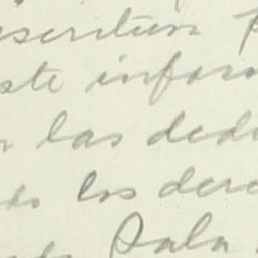 escritura p
ste inform
n las dedu
do los dere
Sala